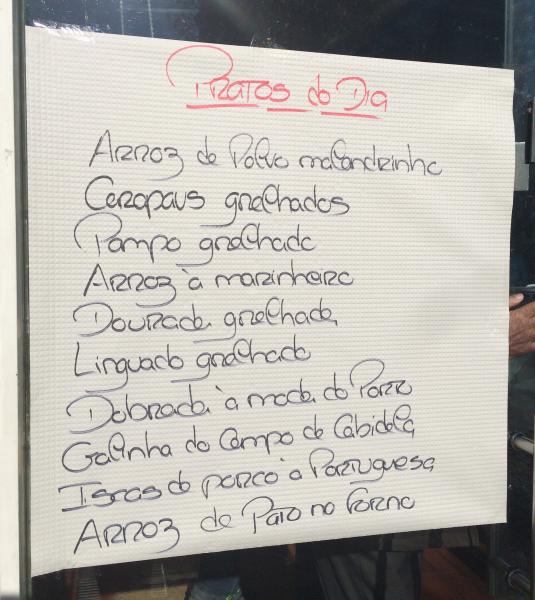 Pratos do Dia
Arroz de Polvo malandrinho
Carapaus grelhados
Pampo grelhado
Arroz à marinheiro
Dourada grelhada
Linguado grelhado
Dobrada à moda do Porto
Galinha do Campo de Cabidela
Iscas de porco à Portuguesa
Arroz de Pato no Forno